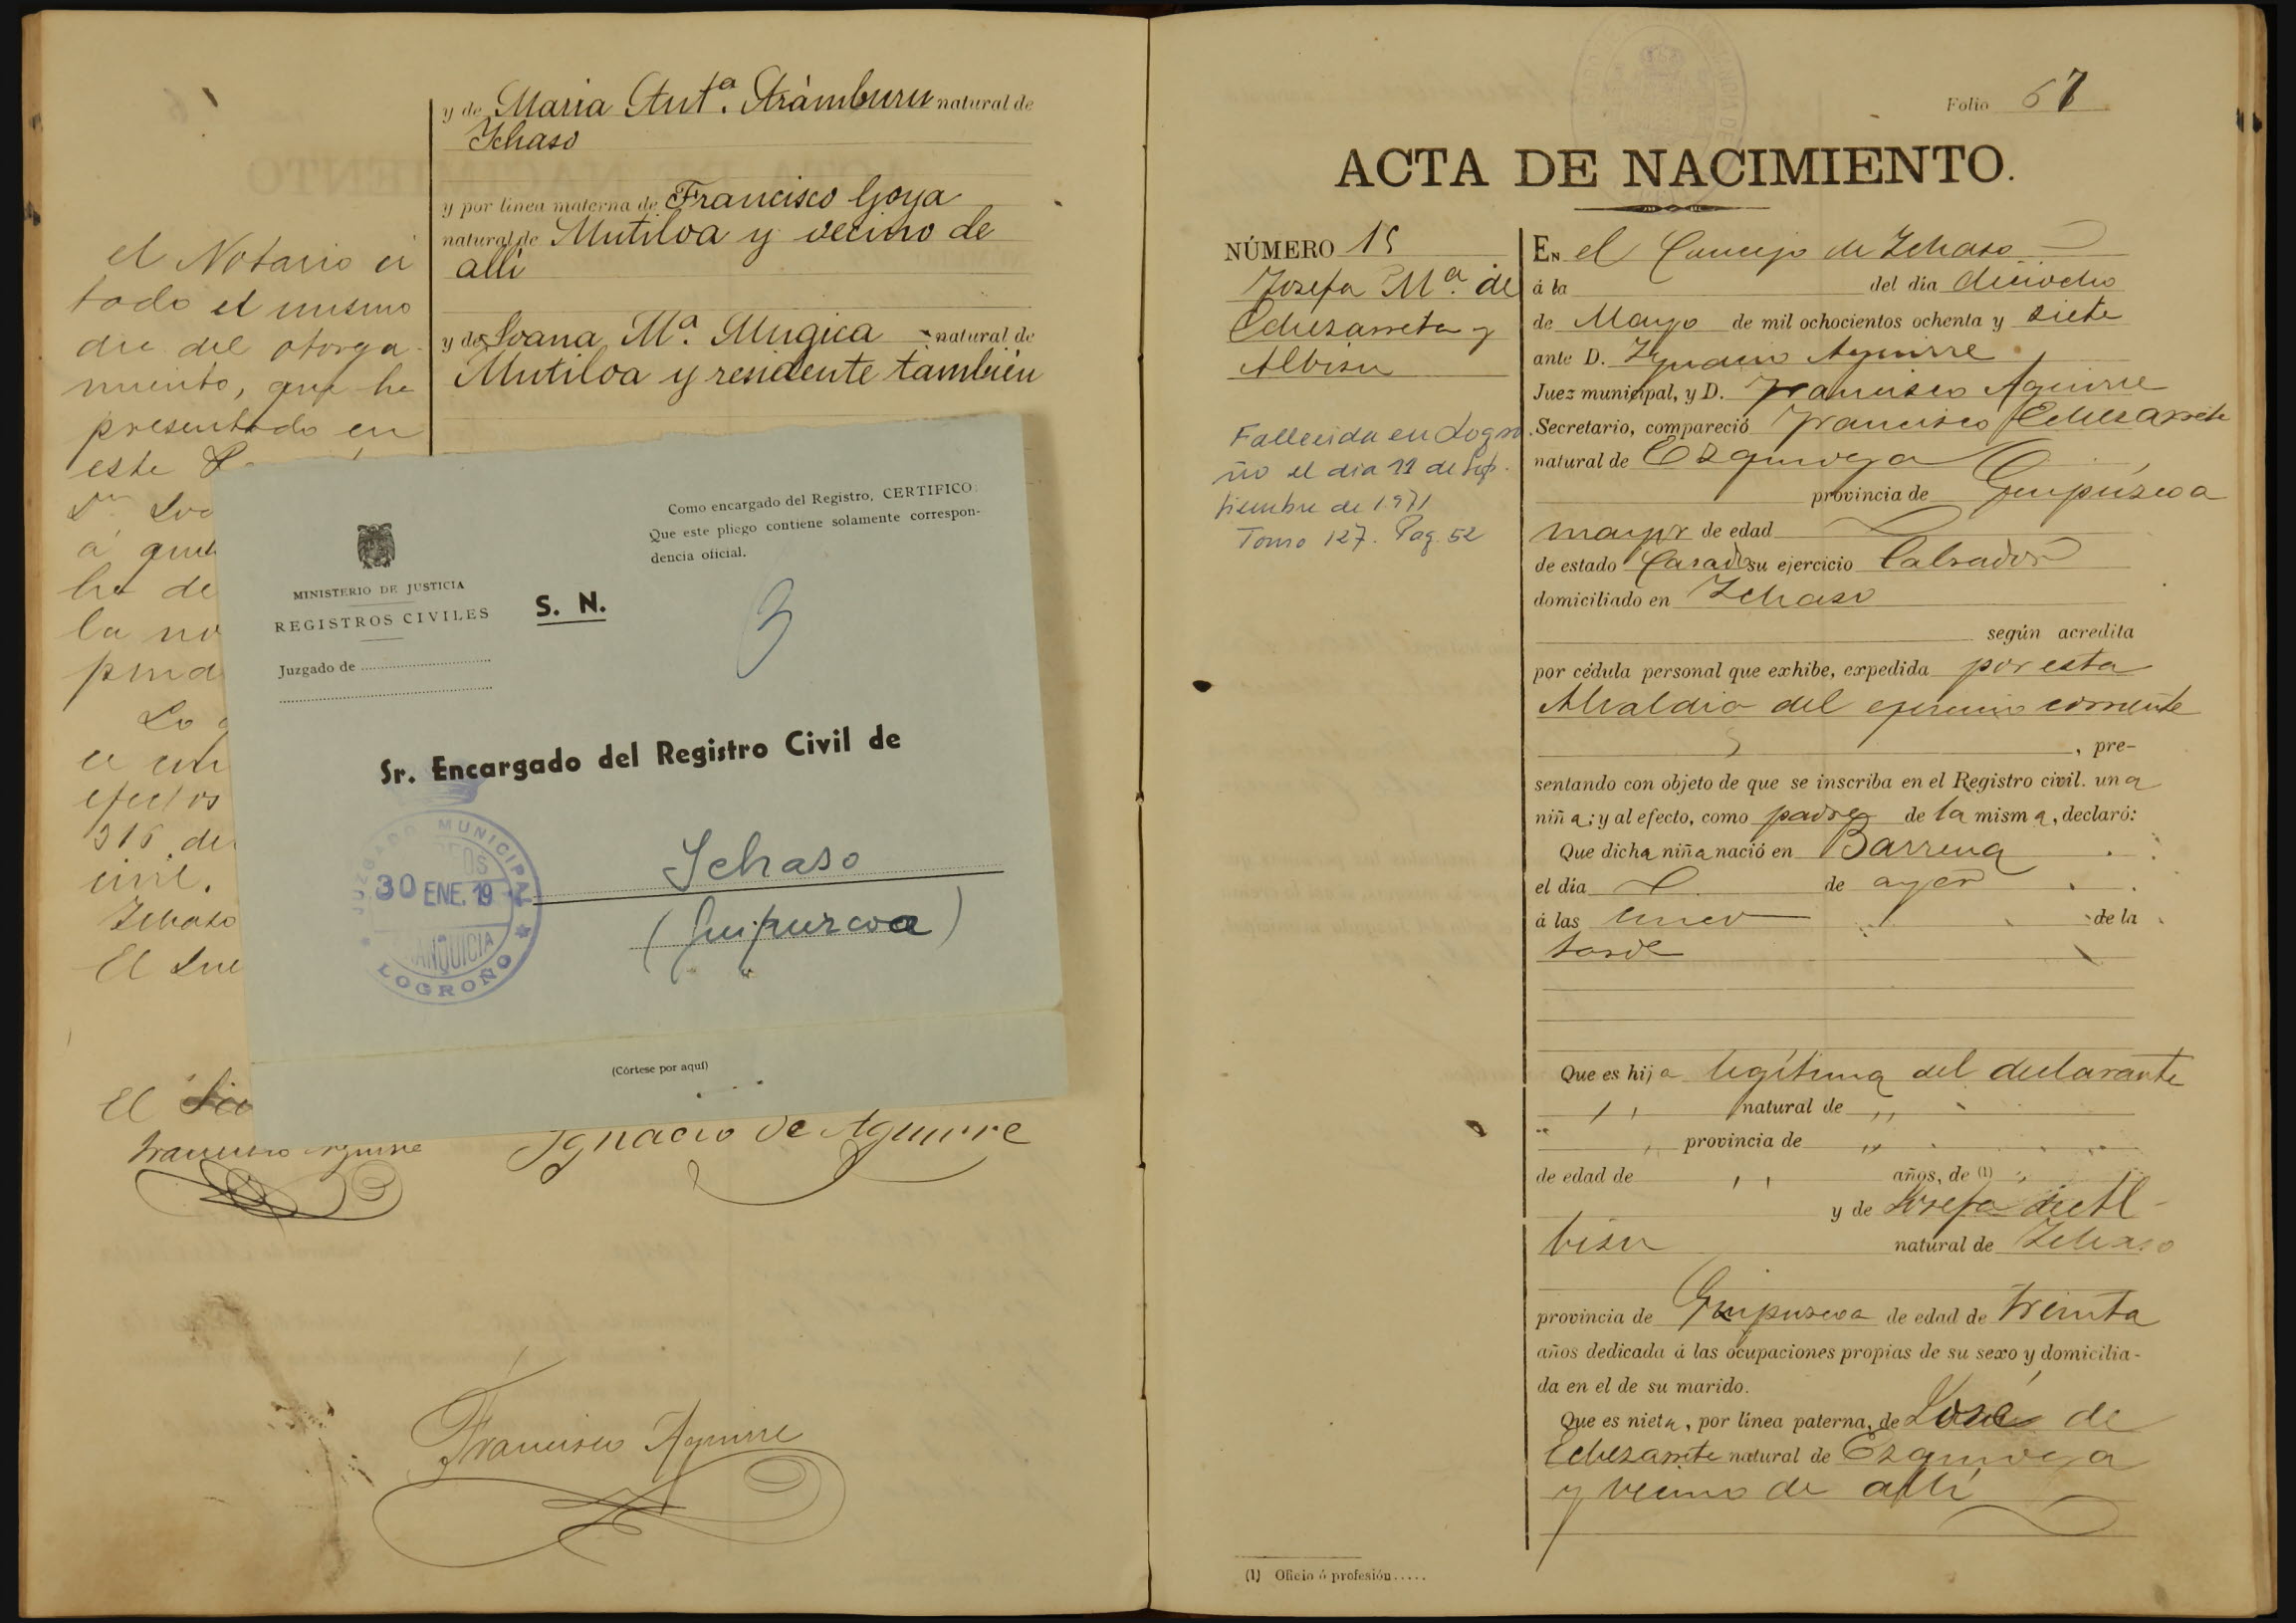 y de Maria Antª. Arámburu natural de
Ichaso
y por línea materna de Francisco Goya
natural de Mutiloa y vecino de
allí
y de Joana Mª. Mugica natural de
Mutiloa y residente también
el Notario ci
tado el mismo
dia del otorga-
miento, que ha
presentado en
este
a
ha de
la no
Lo
efectos
316 de
civil.
Ichaso
El Jue
El
Francisco Aguirre
Ignacio de Aguirre
Francisco Aguirre
Como encargado del Registro, CERTIFICO:
Que este pliego contiene solamente correspon-
dencia oficial.
MINISTERIO DE JUSTICIA
REGISTROS CIVILES
S. N.
3
Juzgado de
Sr. Encargado del Registro Civil de
Ichaso
(Guipurcoa)
JUZGADO MUNICIPAL
30 ENE. 19
ANQUICIA
LOGROÑO
(Córtese por aquí)
Folio 67
ACTA DE NACIMIENTO.
NÚMERO 15
Josefa Mª. de
Echezarreta y
Albisu
Fallecida en Logro
ño el dia 11 de Sep-
tiembre de 1971
Tomo 127. Pag. 52
EN el Concejo de Ichaso
á la del dia dieciocho
de Mayo de mil ochocientos ochenta y siete
ante D. Ygnacio Aguirre
Juez municipal, y D. Francisco Aguirre
Secretario, compareció Francisco Echezarreta
natural de Ezquioga
provincia de Guipúzcoa
mayor de edad
de estado Casado su ejercicio Labrador
domiciliado en Ichaso
según acredita
por cédula personal que exhibe, expedida por esta
Alcaldia del ejercicio corriente
, pre-
sentando con objeto de que se inscriba en el Registro civil. una
niña; y al efecto, como padre de la misma, declaró:
Que dicha niña nació en Barrena
el dia de ayer
á las cinco de la
tarde
Que es hija legítima del declarante
natural de ,,
provincia de ,,
de edad de ,, años, de (1)
y de Josefa de Al-
bisu natural de Ichaso
provincia de Guipuzcoa de edad de treinta
años dedicada á las ocupaciones propias de su sexo y domicilia-
da en el de su marido.
Que es nieta, por línea paterna, de José de
Echezarreta natural de Ezquioga
y vecino de allí
(1) Oficio ó profesión.....